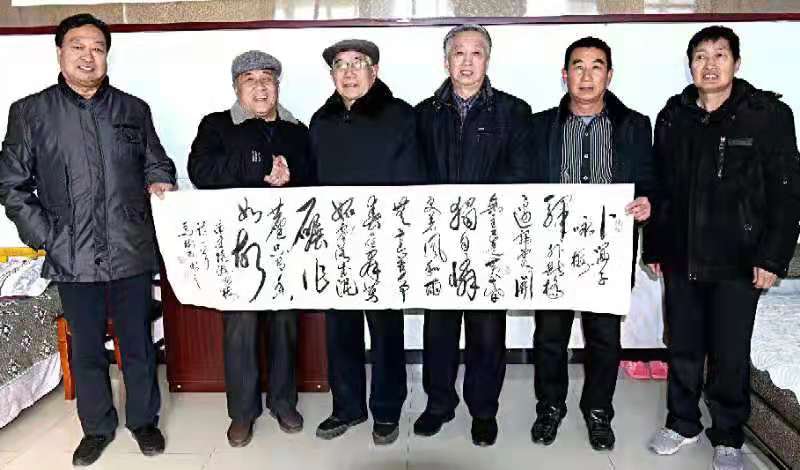 卜算子
咏梅
驛外断橋
邊寂寞開
無主已是黄昏
獨自愁
更著風和雨
無意苦争
春一任群芳
妒零落成泥
碾作
塵只有香
如故